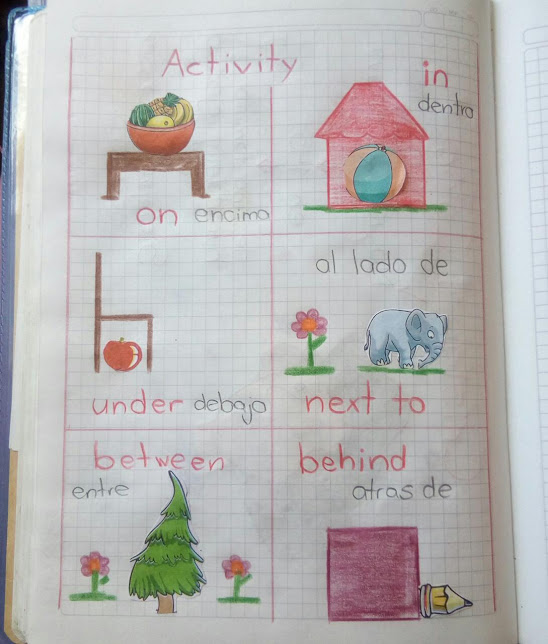 Activity
on encimo
in
dentro
under debajo
al lado de
next to
between
entre
behind
atras de